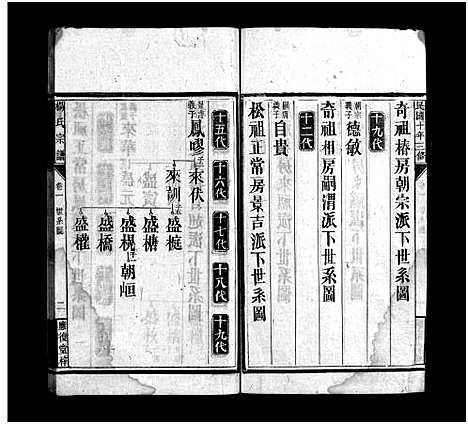 民國十年三修
奇祖椿房朝宗派下世系圖
十九代
朝宗義子
德敏
奇祖相房嗣渭派下世系圖
十二代
自貴
松祖正常房景吉派下世系圖
十五代
十六代
十七代
十八代
十九代
義子
鳳膠
來伏
來訓
盛榳
盛樁
盛梘
朝峘
盛橋
盛權
氏宗譜
卷一
世系圖
二